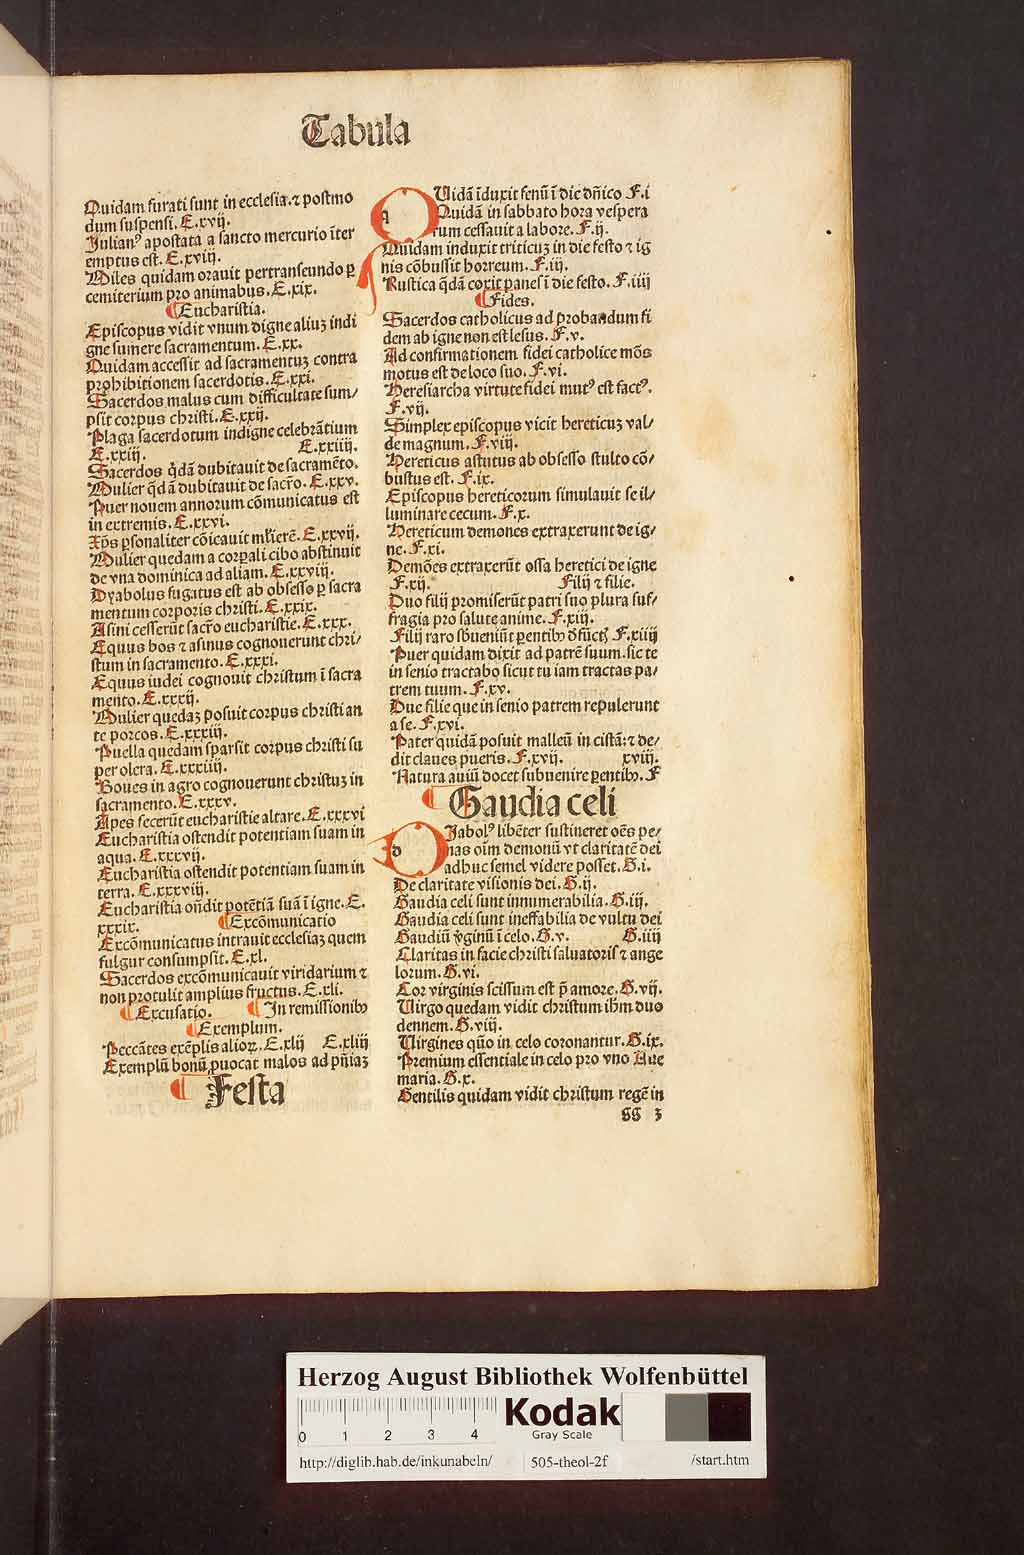 Tabula
Quidam furati sunt in ecclesia.⁊ postmo
dum suspensi. E.xvij.
Julianꝰ apostata a sancto mercurio īter
emptus est. E.xviij.
Miles quidam orauit pertranseundo ꝑ
cemiterium pro animabus. E.xix.
¶Eucharistia.
Episcopus vidit vnum digne aliuꝫ indi
gne sumere sacramentum. E.xx.
Quidam accessit ad sacramentuꝫ contra
prohibitionem sacerdotis. E.xxi.
Sacerdos malus cum difficultate sum/
psit corpus christi. E.xxij.
Plaga sacerdotum indigne celebrātium
E.xxiij. E.xxiiij.
Sacerdos q̄dā dubitauit de sacramēto.
Mulier q̄dā dubitauit de sacr̄o. E.xxv.
Puer nouem annorum cōmunicatus est
in extremis. E.xxvi.
Xp̄s ꝑsonaliter cōicauit ml̄ierē. E.xxvij.
Mulier quedam a corꝑali cibo abstinuit
de vna dominica ad aliam. E.xxviij.
Dyabolus fugatus est ab obsesso ꝑ sacra
mentum corporis christi. E.xxix.
Asini cesserūt sacr̄o eucharistie. E.xxx.
Equus bos ⁊ asinus cognouerunt chri/
stum in sacramento. E.xxxi.
Equus iudei cognouit christum ī sacra
mento. E.xxxij.
Mulier quedaꝫ posuit corpus christi an
te porcos. E.xxxiij.
Puella quedam sparsit corpus christi su
per olera. E.xxxiiij.
Boues in agro cognouerunt christuꝫ in
sacramento. E.xxxv.
Apes fecerūt eucharistie altare. E.xxxvi
Eucharistia ostendit potentiam suam in
aqua. E.xxxvij.
Eucharistia ostendit potentiam suam in
terra. E.xxxviij.
Eucharistia on̄dit potētiā suā ī igne. E.
xxxix. ¶Excōmunicatio
Excōmunicatus intrauit ecclesiaꝫ quem
fulgur consumpsit. E.xl.
Sacerdos excōmunicauit viridarium ⁊
non protulit amplius fructus. E.xli.
¶Excusatio. ¶In remissionibꝰ
¶Exemplum.
Peccātes exēplis alioꝝ. E.xlij E.xliij
Exemplū bonū ꝓuocat malos ad pn̄iaꝫ
¶ Festa
q
QUidā īduxit fenū ī die dn̄ico F.i
Quidā in sabbato hora vespera
rum cessauit a labore. F.ij.
Quidam induxit triticuꝫ in die festo ⁊ ig
nis cōbussit horreum. F.iij.
Rustica q̄dā coxit panes ī die festo. F.iiij
¶Fides.
Sacerdos catholicus ad probandum fi
dem ab igne non est lesus. F.v.
Ad confirmationem fidei catholice mōs
motus est de loco suo. F.vi.
Heresiarcha virtute fidei mutꝰ est factꝰ.
F.vij.
Simplex episcopus vicit hereticuꝫ val/
de magnum. F.viij.
Hereticus astutus ab obsesso stulto cō/
bustus est. F.ix.
Episcopus hereticorum simulauit se il/
luminare cecum. F.x.
Hereticum demones extraxerunt de ig/
ne. F.xi.
Demōes extraxerūt ossa heretici de igne
F.xij. Filij ⁊ filie.
Duo filij promiserūt patri suo plura suf/
fragia pro salute anime. F.xiij.
Filij raro sb̄veniūt ꝑentibꝰ F.xiiij
Puer quidam dixit ad patrē suum. sic te
in senio tractabo sicut tu iam tractas pa/
trem tuum. F.xv.
Due filie que in senio patrem repulerunt
a se. F.xvi.
Pater quidā posuit malleū in cistā: ⁊ de/
dit claues pueris. F.xvij. xviij.
Natura auiū docet subuenire ꝑentibꝰ. F
¶ Gaudia celi
d
DJabolꝰ libēter sustineret oēs pe/
nas oīm demonū vt claritatē dei
adhuc semel videre posset. G.i.
De claritate visionis dei. G.ij.
Gaudia celi sunt innumerabilia. G.iij.
Gaudia celi sunt ineffabilia de vultu dei
Gaudiū v̄ginū ī celo. G.v. G.iiij
Claritas in facie christi saluatoris ⁊ ange
lorum. G.vi.
Cor virginis scissum est p̄ amore. G.vij.
Virgo quedam vidit christum ih̄m duo
dennem. G.viij.
Virgines quō in celo coronantur. G.ix.
Premium essentiale in celo pro vno Aue
maria. G.x.
Gentilis quidam vidit christum regē in
GG 3
Herzog August Bibliothek Wolfenbüttel
0 1 2 3 4
Kodak
Gray Scale
http://diglib.hab.de/inkunabeln/ 505-theol-2f /start.htm